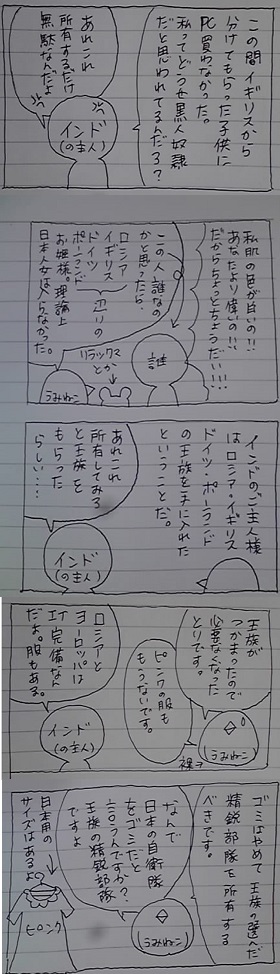 この間イギリスから
分けてもらった子供に
PC買わなかった。
私ってどうせ黒人奴隷
だと思われてるんだろ？
あれこれ
所有するだけ
無駄なんだよ
インド
(の主人)
私肌の色が白いの!!
あなたより偉いの!!
だからちょっとちょうだい!!!!
この人誰なの
かと思ったら、
ロシア
イギリス
ドイツ
ポーランド
辺りの
お姫様。理論上
日本人女は入らなかった。
誰
リラックス
とか
うみねこ
インドのご主人様
はロシア・イギリス
ドイツ・ポーランド
の王族を手に入れた
ということだ。
あれこれ
所有してみる
と王族を
もらった
らしい‥‥
インド
(の主人)
王族が
つかまったので
必要なくなった
とりです。
ピンクの服も
もうないです。
(うみねこ)
裸→
ロシアと
ヨーロッパは
IT完備なん
だよ。服もある。
インド
(の主人)
ゴミはやめて王族の選んだ
精鋭部隊を所有する
べきです。
なんで
日本の自衛隊
をゴミだと
言うんですか？
王族の精鋭部隊
ですよ
(うみねこ)
日本用の
サイズはあるよ
ピンク